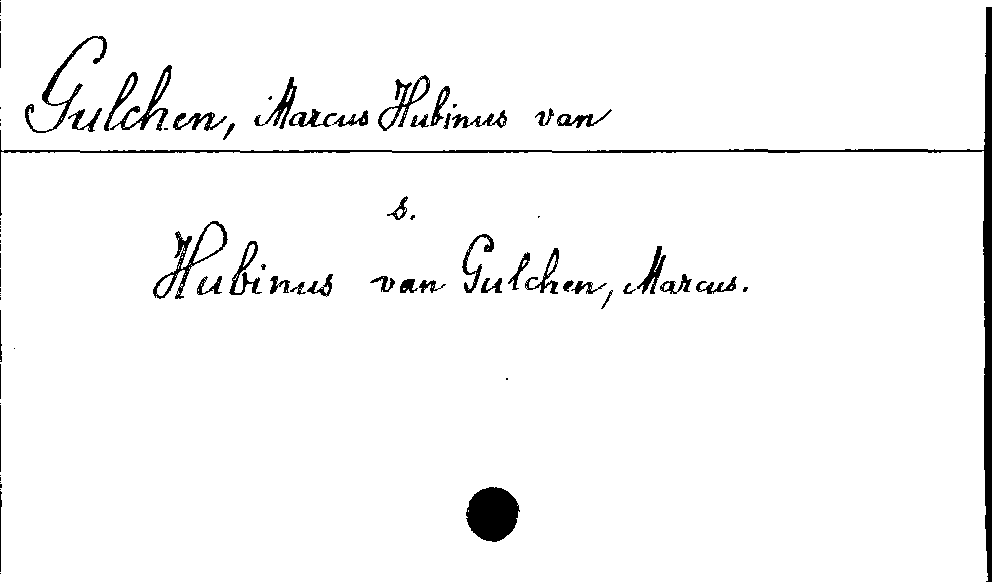 Gulchen, Marcus Hubinus van
s.
Hubinus van Gulchen, Marcus.